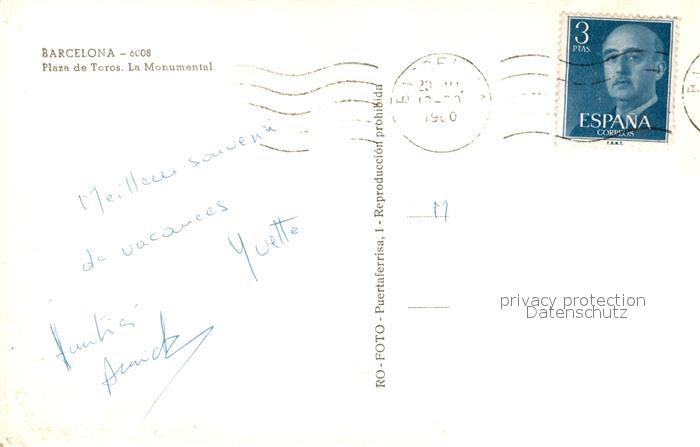 BARCELONA - 6008
Plaza de Toros. La Monumental
Meilleur souvenir
de vacances
Yvette
Amitiés
Annick
RO - FOTO - Puertaferrisa, 1 - Reproducción prohibida
1960
3
PTAS
ESPAÑA
CORREOS
F.N.M.T.
M
privacy protection
Datenschutz